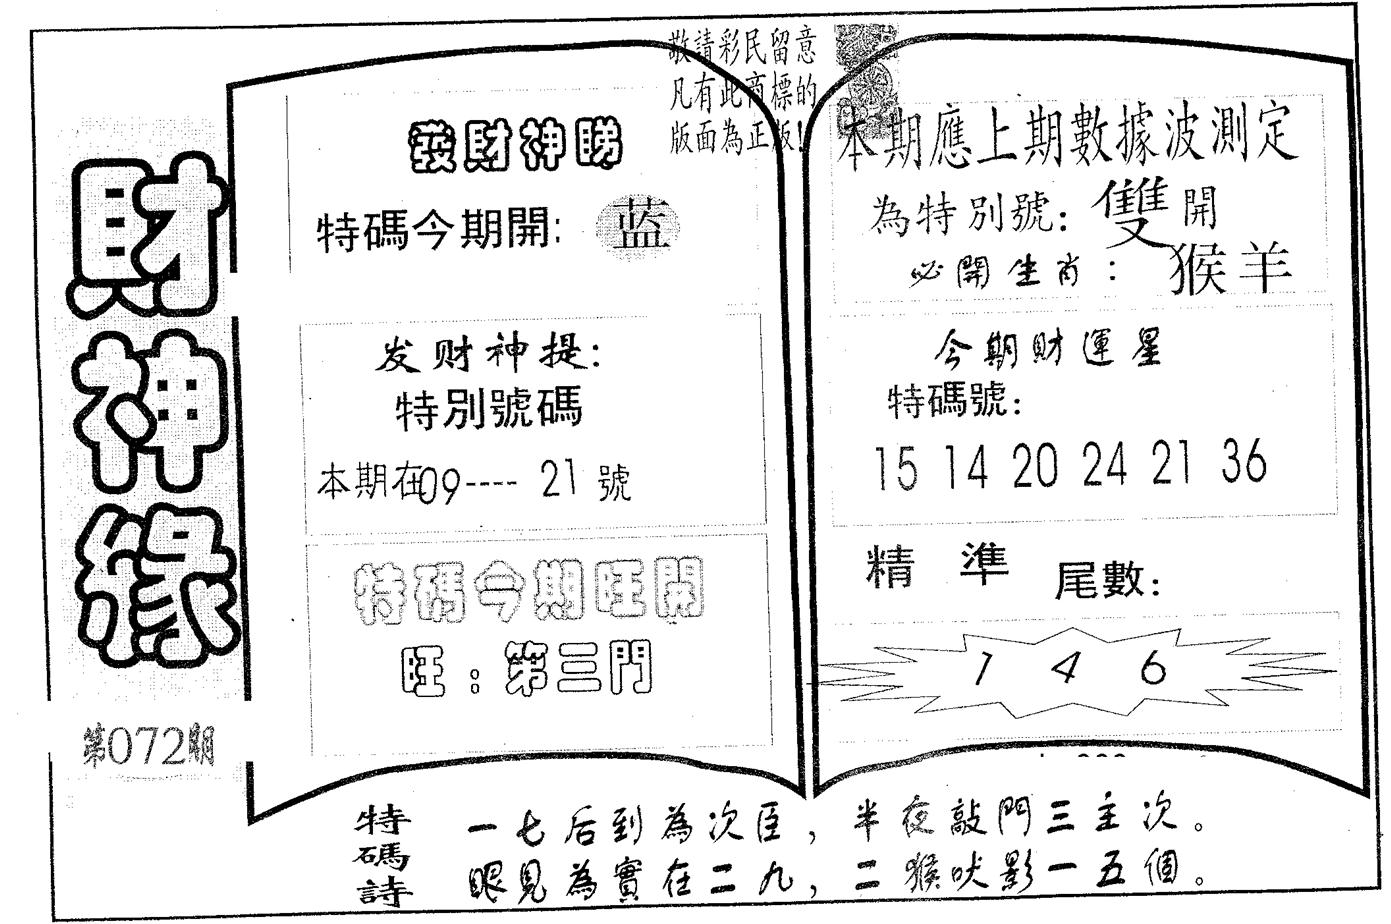 財神緣
第072期
敬請彩民留意
凡有此商標的
版面為正版!
發財神睇
特碼今期開: 蓝
发财神提:
特別號碼
本期在09---- 21 號
特碼今期旺開
旺:第三門
本期應上期數據波測定
為特別號: 雙 開
必開生肖: 猴羊
今期財運星
特碼號:
15 14 20 24 21 36
精準 尾數:
1 4 6
特碼詩
一七后到為次臣,半夜敲門三主次。
眼見為實在二九,二猴吠影一五個。